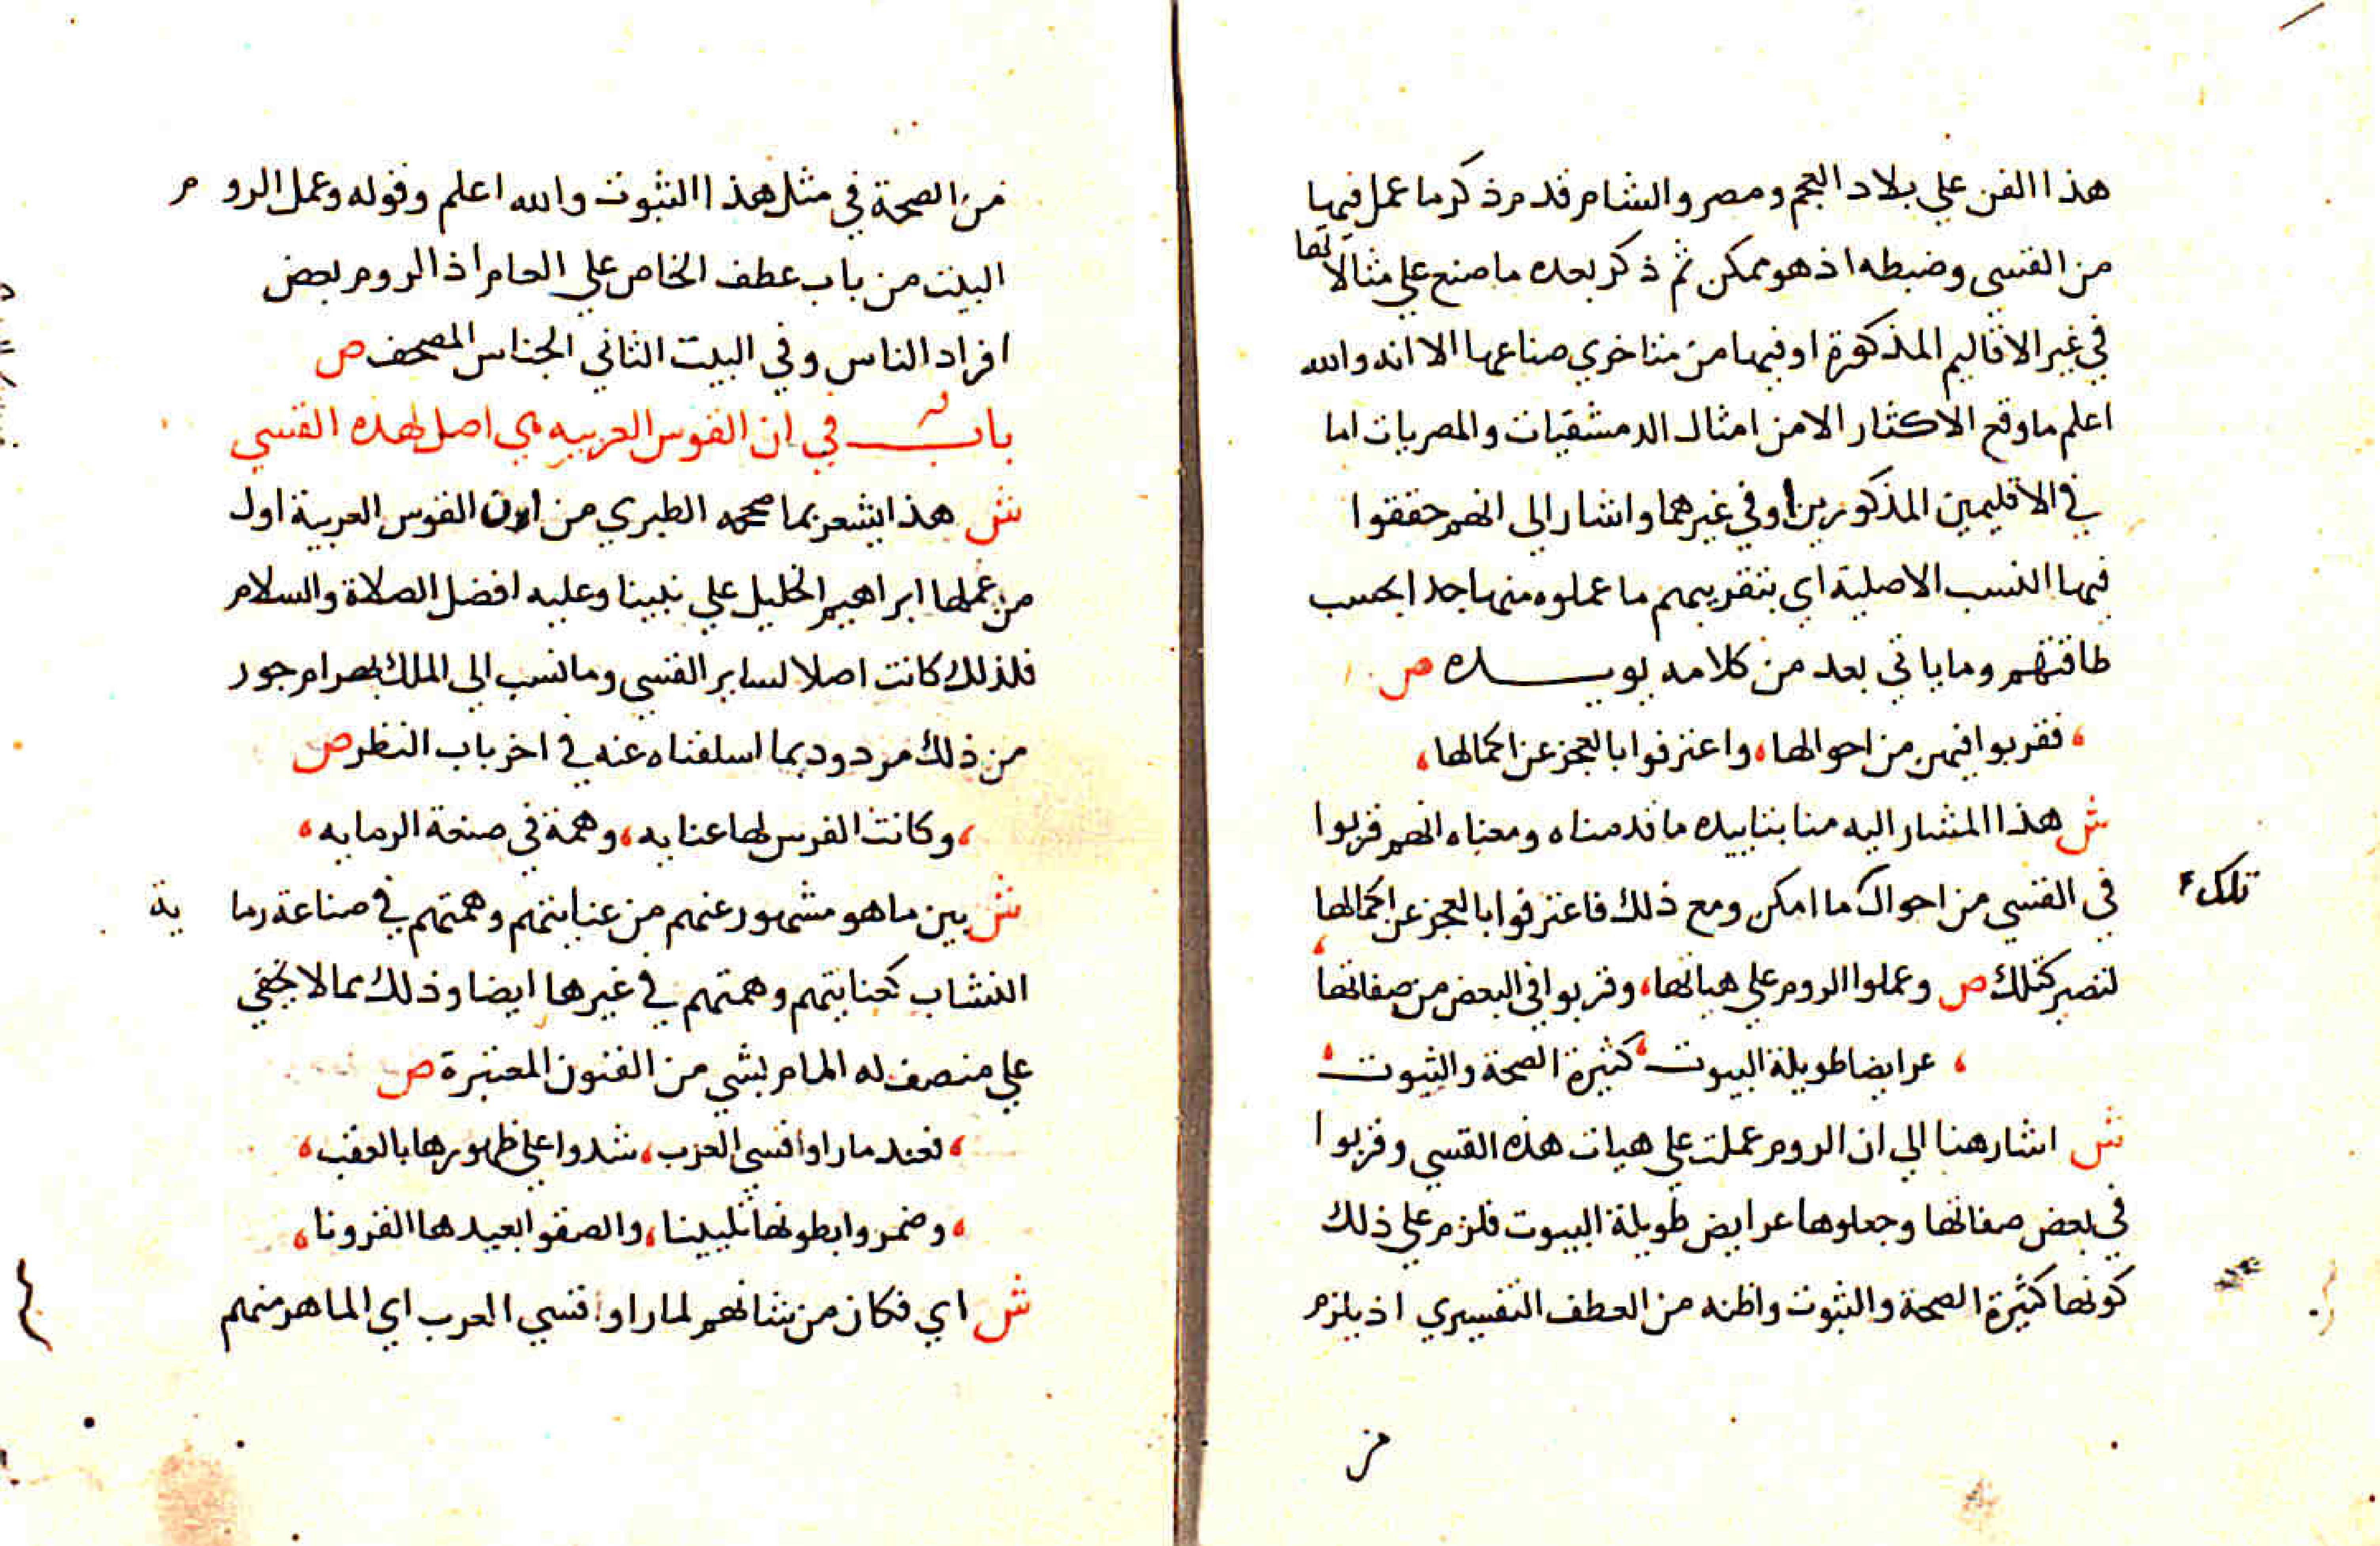 هذا الفن علي بلاد العجم ومصر والشام قدم ذكر ما عمل فيها
من القسي وضبطه اذ هو ممكن ثم ذكر بعده ما صنع علي مثالاتها
في غير الاقاليم المذكورة او فيها من متاخري صناعها الا انه والله
اعلم ما وقع الاكثار الا من امثال الدمشقيات والمصريات اما
في الاقليمين المذكورين او في غيرهما واشار الي انهم حققوا
فيها النسب الاصلية اي بتقريبهم ما عملوه منها جدا بحسب
طاقتهم وما ياتي بعد من كلامه يويده ص
، فقربوا فيهن من احوالها، واعترفوا بالعجز عن اكمالها،
ش هذا المشار اليه منا بتاييده ما قدمناه ومعناه انهم قربوا
في القسي من احوال ما امكن ومع ذلك فاعترفوا بالعجز عن اكمالها
تلك
لتصير كتلك ص وعملوا الروم علي هياتها، وقربوا في البعض من صفاتها،
، عرايضا طويلة البيوت، كثيرة الصحة والثبوت،
ش اشار هنا الي ان الروم عملت علي هيات هذه القسي وقربوا
في بعض صفاتها وجعلوها عرايض طويلة البيوت فلزم علي ذلك
كونها كثيرة الصحة والثبوت واظنه من العطف التفسيري اذ يلزم
من
من الصحة في مثل هذا الثبوت والله اعلم وقوله وعمل الروم
البيت من باب عطف الخاص علي العام اذ الروم بعض
افراد الناس وفي البيت الثاني الجناس المصحف ص
باب في ان القوس العربيه هي اصل لهذه القسي
ش هذا يشعر بما صححه الطبري من ان القوس العربية اول
من عملها ابراهيم الخليل علي نبينا وعليه افضل الصلاة والسلام
فلذلك كانت اصلا لساير القسي وما نسب الي الملك بهرام جور
من ذلك مردود بما اسلفناه عنه في اخر باب النظر ص
، وكانت الفرس لها عنايه، وهمة في صنعة الرمايه،
ش بين ما هو مشهور عنهم من عنايتهم وهمتهم في صناعة رماية
النشاب كعنايتهم وهمتهم في غيرها ايضا وذلك مما لا يخفي
علي منصف له المام بشي من الفنون المعتبرة ص
، فعند ما راوا قسي العرب، شدوا علي ظهورها بالعقب،
، وضمروا بطونها تليينا، والصقوا بعيدها القرونا،
ش اي فكان من شانهم لما راوا قسي العرب اي الماهر منهم